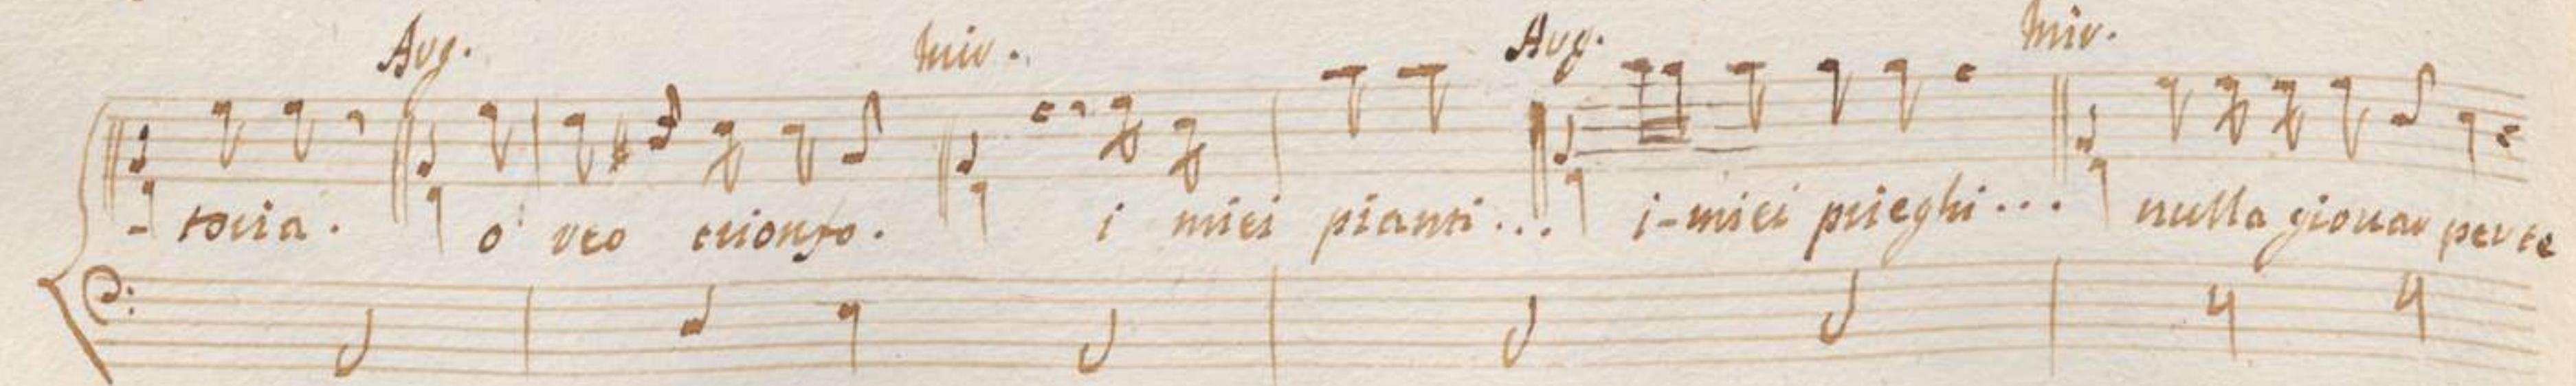 Aug. Miv. Aug. Miv.
- toria. o veo trionfo. i miei pianti... i-miei prieghi... nulla giovan per te